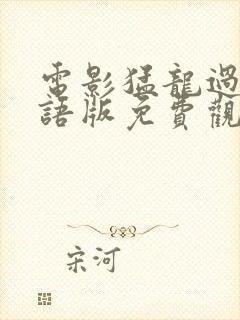 電影猛龍過
語版免費觀
宋河